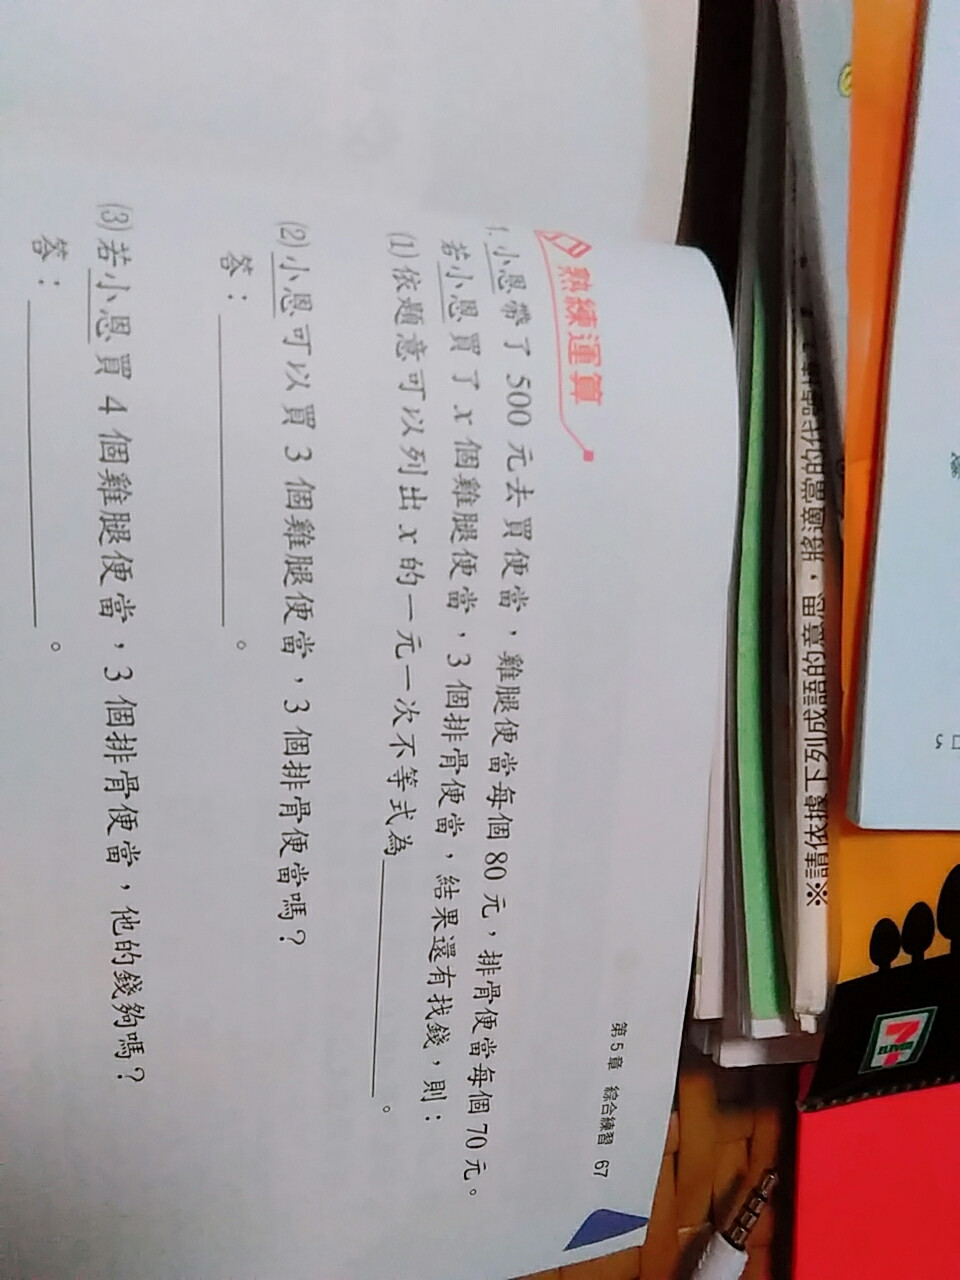 第5章 綜合練習 67
熟練運算
1. 小恩帶了 500 元去買便當，雞腿便當每個 80 元，排骨便當每個 70 元。
若小恩買了 x 個雞腿便當，3 個排骨便當，結果還有找錢，則：
(1) 依題意可以列出 x 的一元一次不等式為＿＿＿＿＿＿。
(2) 小恩可以買 3 個雞腿便當，3 個排骨便當嗎？
答：＿＿＿＿＿＿。
(3) 若小恩買 4 個雞腿便當，3 個排骨便當，他的錢夠嗎？
答：＿＿＿＿＿＿。
※請依據下列成語的意思，將適當的